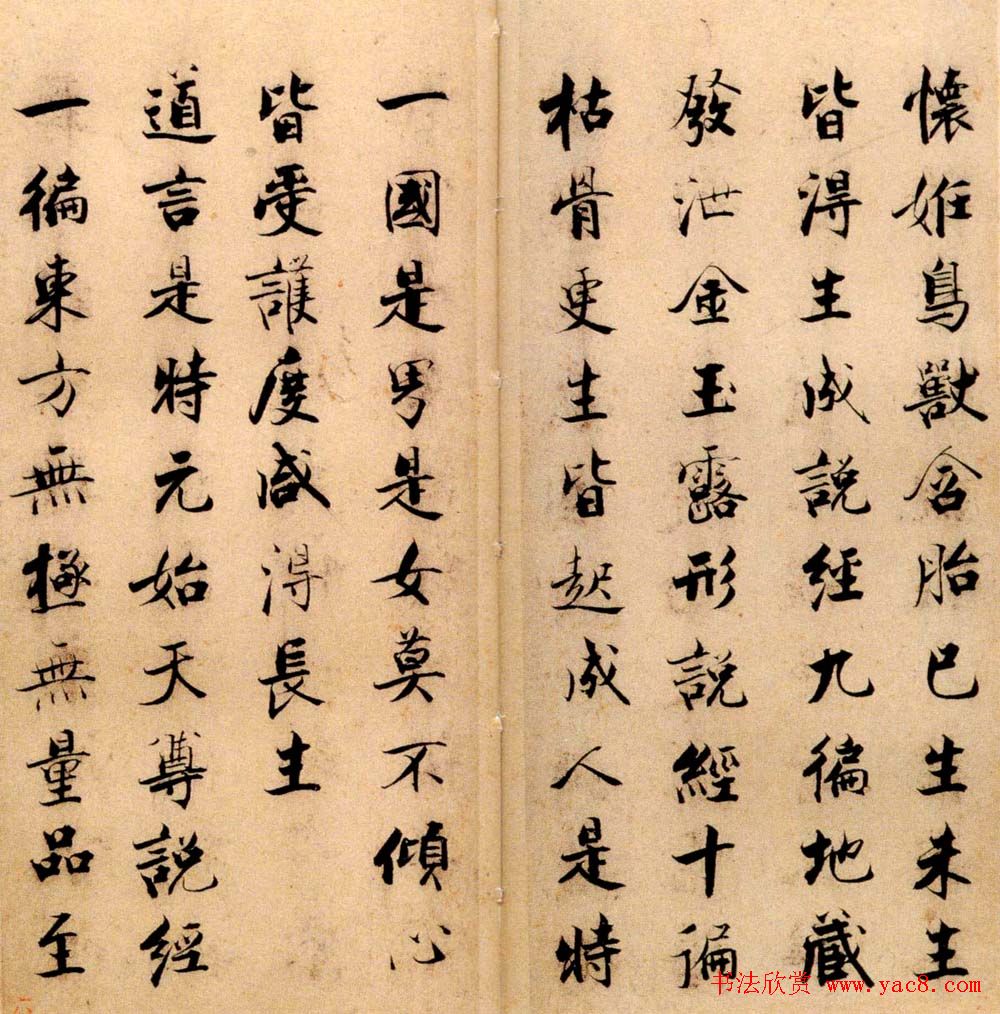 懷姙鳥獸含胎已生未生
皆淂生成説經九徧地藏
發泄金玉露形説經十徧
枯骨更生皆起成人是特
一國是男是女莫不傾心
皆受護度咸淂長生
道言是特元始天尊説經
一徧東方無極無量品至
书法欣赏 www.yac8.com